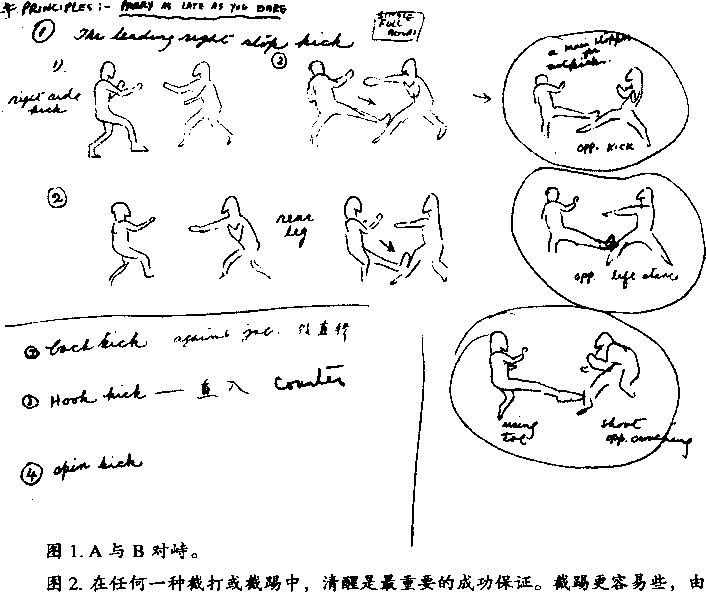 PRINCIPLES:- PARRY AS LATE AS YOU DARE
① The leading right stop kick
1).
right side kick
②
rear leg
opp. kick
opp. left stance
② back kick against jab.
③ Hook kick — 直入 Counter
④ spin kick
using toe
short opp.
图 1. A 与 B 对峙。
图 2. 在任何一种截打或截踢中，清醒是最重要的成功保证。截踢更容易些，由